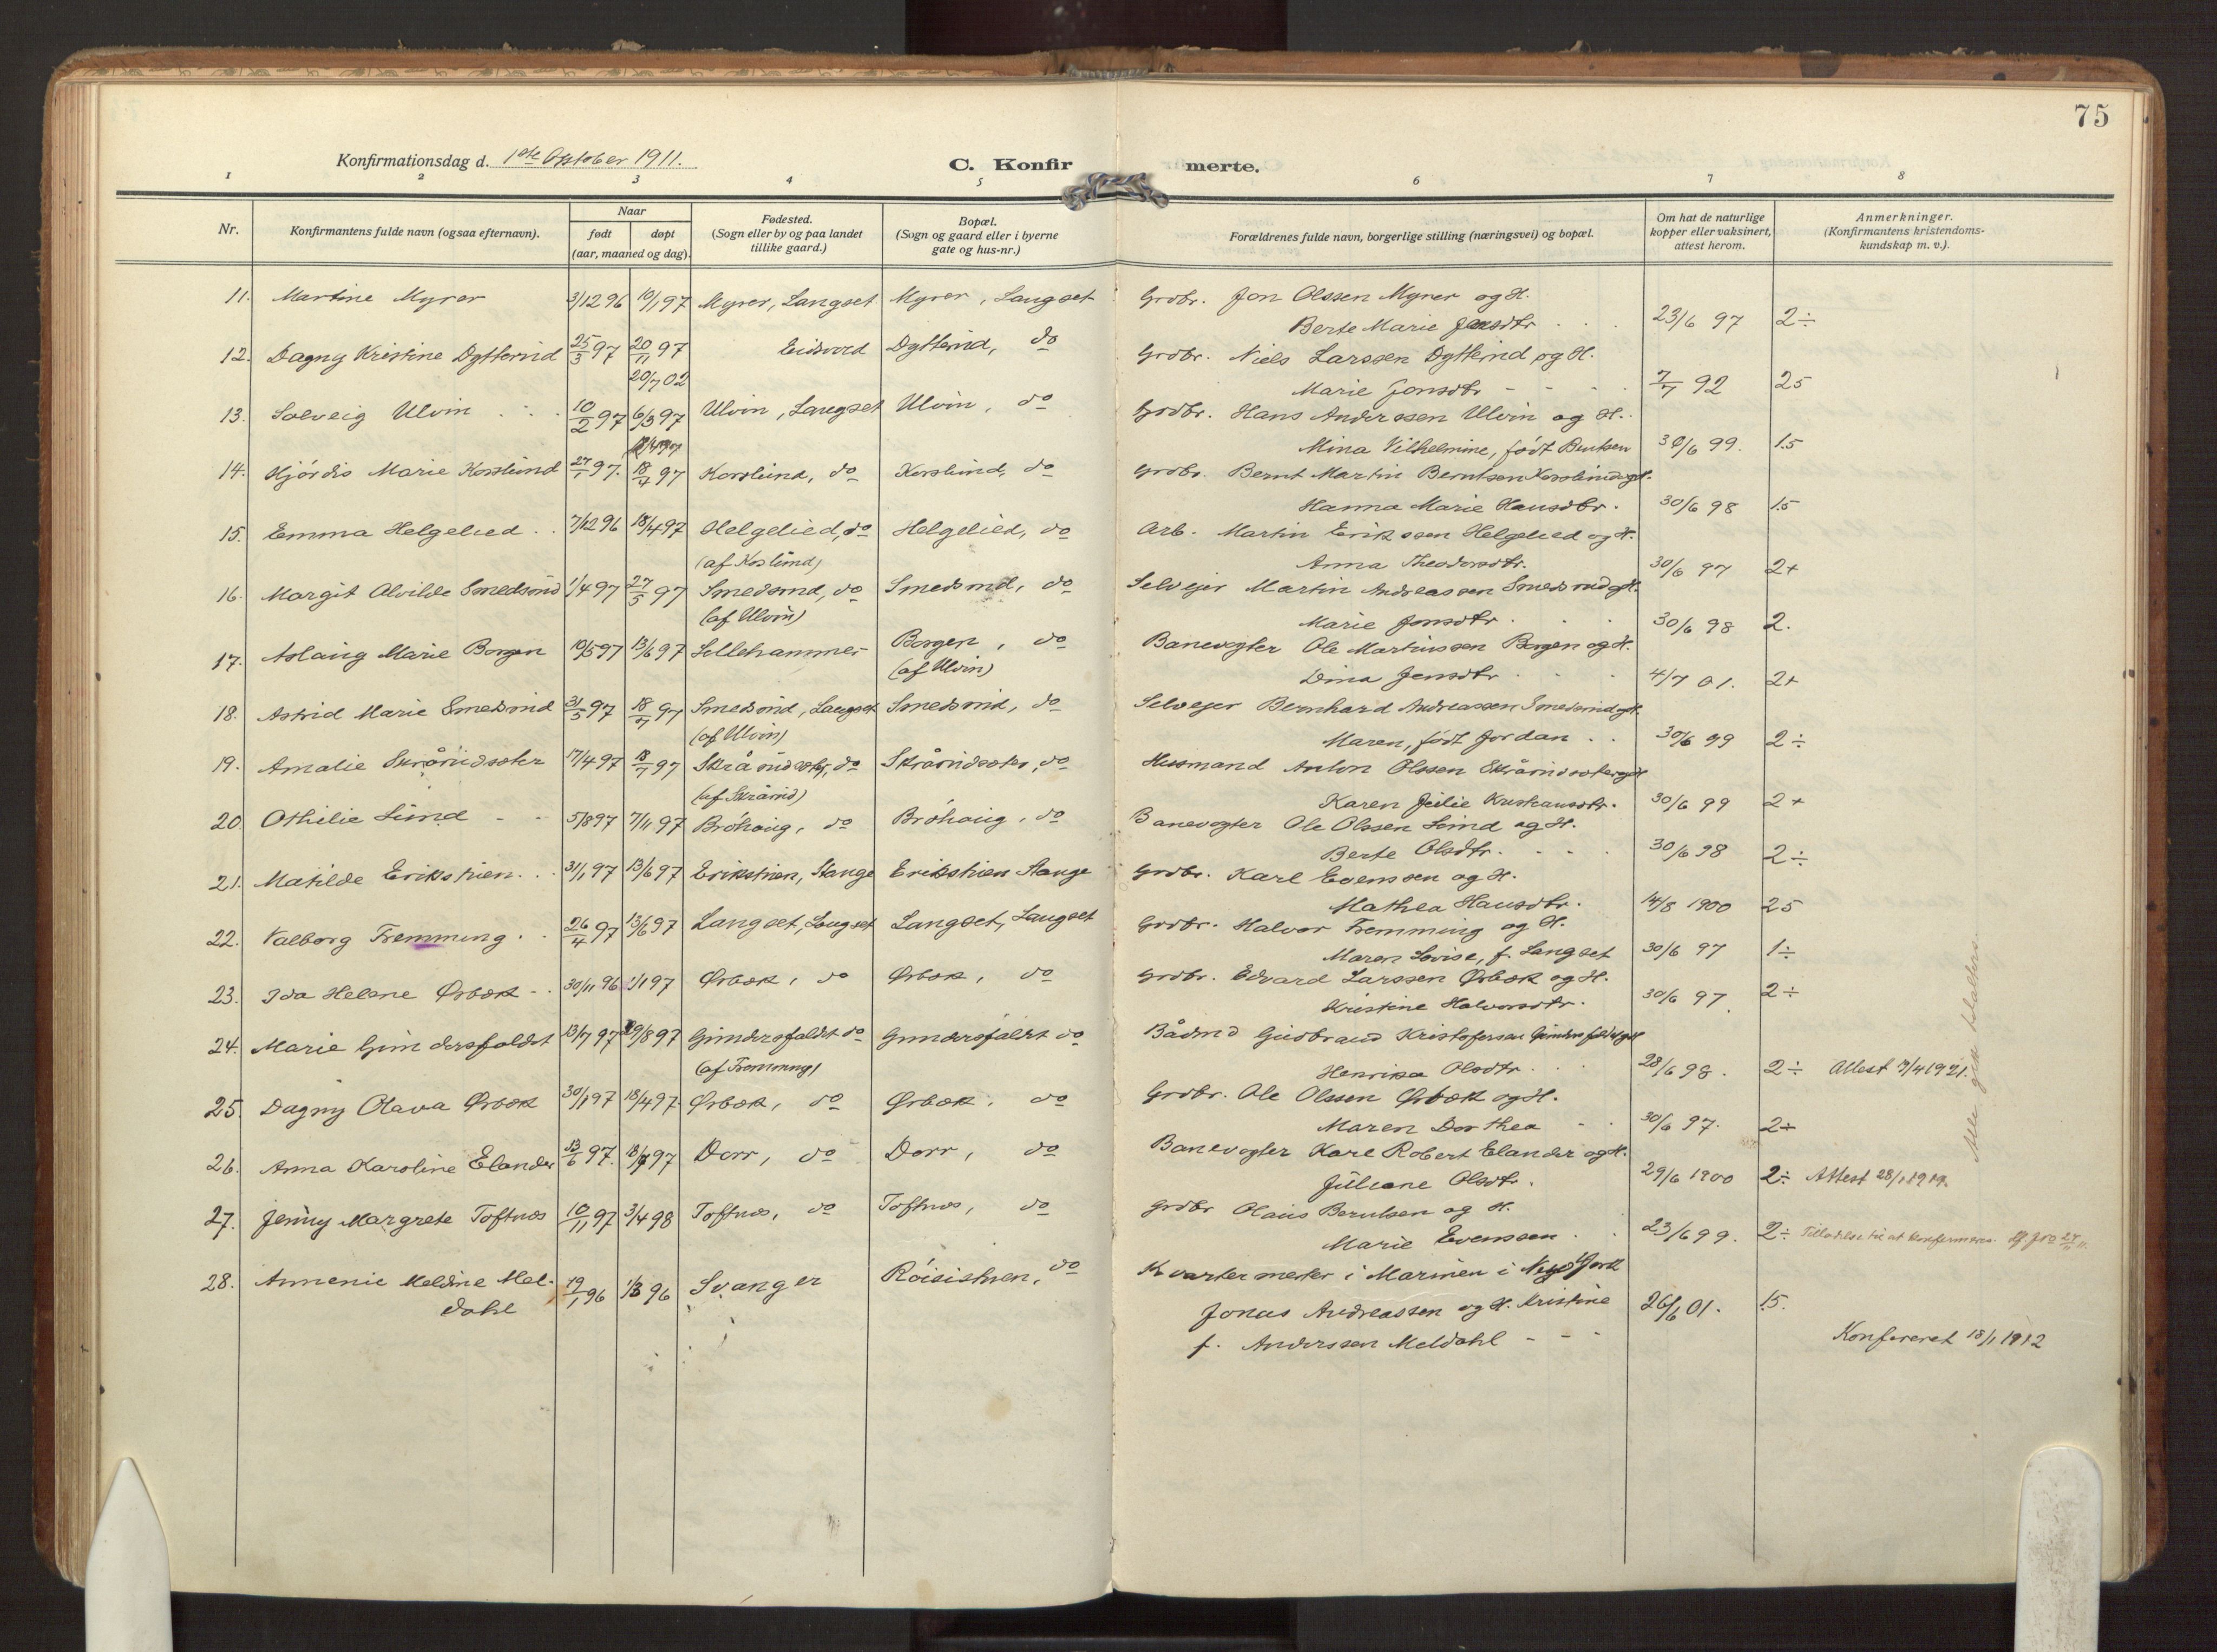 75
Konfirmationsdag d. 1ste Oktober 1911.
C. Konfirmerte.
1 2 3 4 5 6 7 8
Nr.
Konfirmantens fulde navn (ogsaa efternavn).
Naar
født døpt
(aar, maaned og dag).
Fødested.
(Sogn eller by og paa landet
tillike gaard.)
Bopæl.
(Sogn og gaard eller i byerne
gate og hus-nr.)
Forældrenes fulde navn, borgerlige stilling (næringsvei) og bopæl.
Om hat de naturlige
kopper eller vaksinert,
attest herom.
Anmerkninger.
(Konfirmantens kristendoms-
kundskap m. v.).
11. Martine Myrer 3/12 96 10/1 97 Myrer, Langset Myrer, Langset Grdbr. Jon Olssen Myrer og H.
Berte Marie Jensdtr 23/6 97 2÷
12. Dagny Kristine Dytterud 25/3 97 20/11 97 Eidsvold Dytterud, do Grdbr. Niels Larssen Dytterud og H.
20/7 02
Marie Jonsdtr 7/7 92 25
13. Solveig Ulvin 10/2 97 6/3 97 Ulvin, Langset Ulvin, do Grdbr. Hans Anderssen Ulvin og H.
Mina Vilhelmine, født Bentsen 30/6 99. 1.5
14. Hjördis Marie Korslund 27/1 97. 18/4 97 Korslund, do Korslund, do Grdbr. Bernt Martin Berntsen Korslund og H.
Hanna Marie Hansdtr. 30/6 98 1.5
15. Emma Helgelied 7/12 96 18/4 97 Helgelied, do Helgelied, do Arb. Martin Erikssen Helgelied og H.
(af Koslund)
Anna Theodorsdtr. 30/6 97 2+
16. Margit Alvilde Smedsrud 1/4 97 27/5 97 Smedsrud, do Smedsrud, do Selvejer Martin Andreassen Smedsrud og H.
(af Ulvin)
Marie Jonsdtr 30/6 98 2.
17. Aslaug Marie Borgen 10/5 97 13/6 97 Lillehammer Borgen, do Banevogter Ole Martinssen Borgen og H.
(af Ulvin)
Dina Jensdtr 4/7 01. 2+
18. Astrid Marie Smedsrud 31/5 97 18/7 97 Smedsrud, Langset Smedsrud, do Selvejer Bernhard Andreassen Smedsrud og H.
(af Ulvin)
Maren, født Jordan 30/6 99 2÷
19. Amalie Skrårudsæter 17/4 97 18/7 97 Skrårudsæter, do Skrårudsæter, do Husmand Anton Olssen Skrårudsæter og H
(af Skrårud)
Karen Julie Kristiansdtr. 30/6 99 2+
20. Othilie Lund 5/8 97 7/11 97 Bróhaug, do Bróhaug, do Banevogter Ole Olssen Lund og H.
Berte Olsdtr. 30/6 98 2÷
21. Matilde Erikstuen 31/1 97 13/6 97 Erikstuen, Stange Erikstuen Stange Grdbr. Karl Evenssen og H.
Mathea Hansdtr. 14/8 1900 25
22. Valborg Fremming 26/4 97 13/6 97 Langset, Langset Langset, Langset Grdbr. Halvor Fremming og H.
Maren Lovise, f. Langset 30/6 97 1÷
23. Ida Helene Ørbæk 30/11 96 1/1 97 Ørbæk, do Ørbæk, do Grdbr. Edvard Larssen Ørbæk og H.
Kristine Halvorsdtr. 30/6 97. 2÷
24. Marie Gundersfaldet 13/7 97 29/8 97 Gundersfaldet do Gundersfaldet do Bådmd Gudbrand Kristofersen Gundersfaldet og H
(af Fremming)
Henrika Olsdtr 28/6 98. 2÷ Attest 7/4 1921.
25. Dagny Olava Ørbæk 30/1 97 18/4 97 Ørbæk, do Ørbæk, do Grdbr. Ole Olssen Ørbæk og H.
Maren Dorthea 30/6 97. 2÷
26. Anna Karoline Elander 13/6 97. 18/7 97 Dorr, do Dorr, do Banevogter Karl Robert Elander og H.
Juliane Olsdtr. 29/6 1900 2÷ Attest 28/1 1919.
27. Jenny Margrete Toftnæs 10/11 97 3/4 98 Toftnæs, do Toftnæs, do Grdbr Olaus Berntsen og H.
Marie Evenssen 23/6 99. 2÷ Tilladelse til at konfirmeres.
28. Annenie Meldine Mel- 19/1 96 1/3 96 Svanger Róisistuen, do Kvartermester i Marinen i New York
dahl
Jonas Andreassen og H. Kristine 26/6 01. 15.
f. Anderssen Meldahl Konfereret 18/1 1912